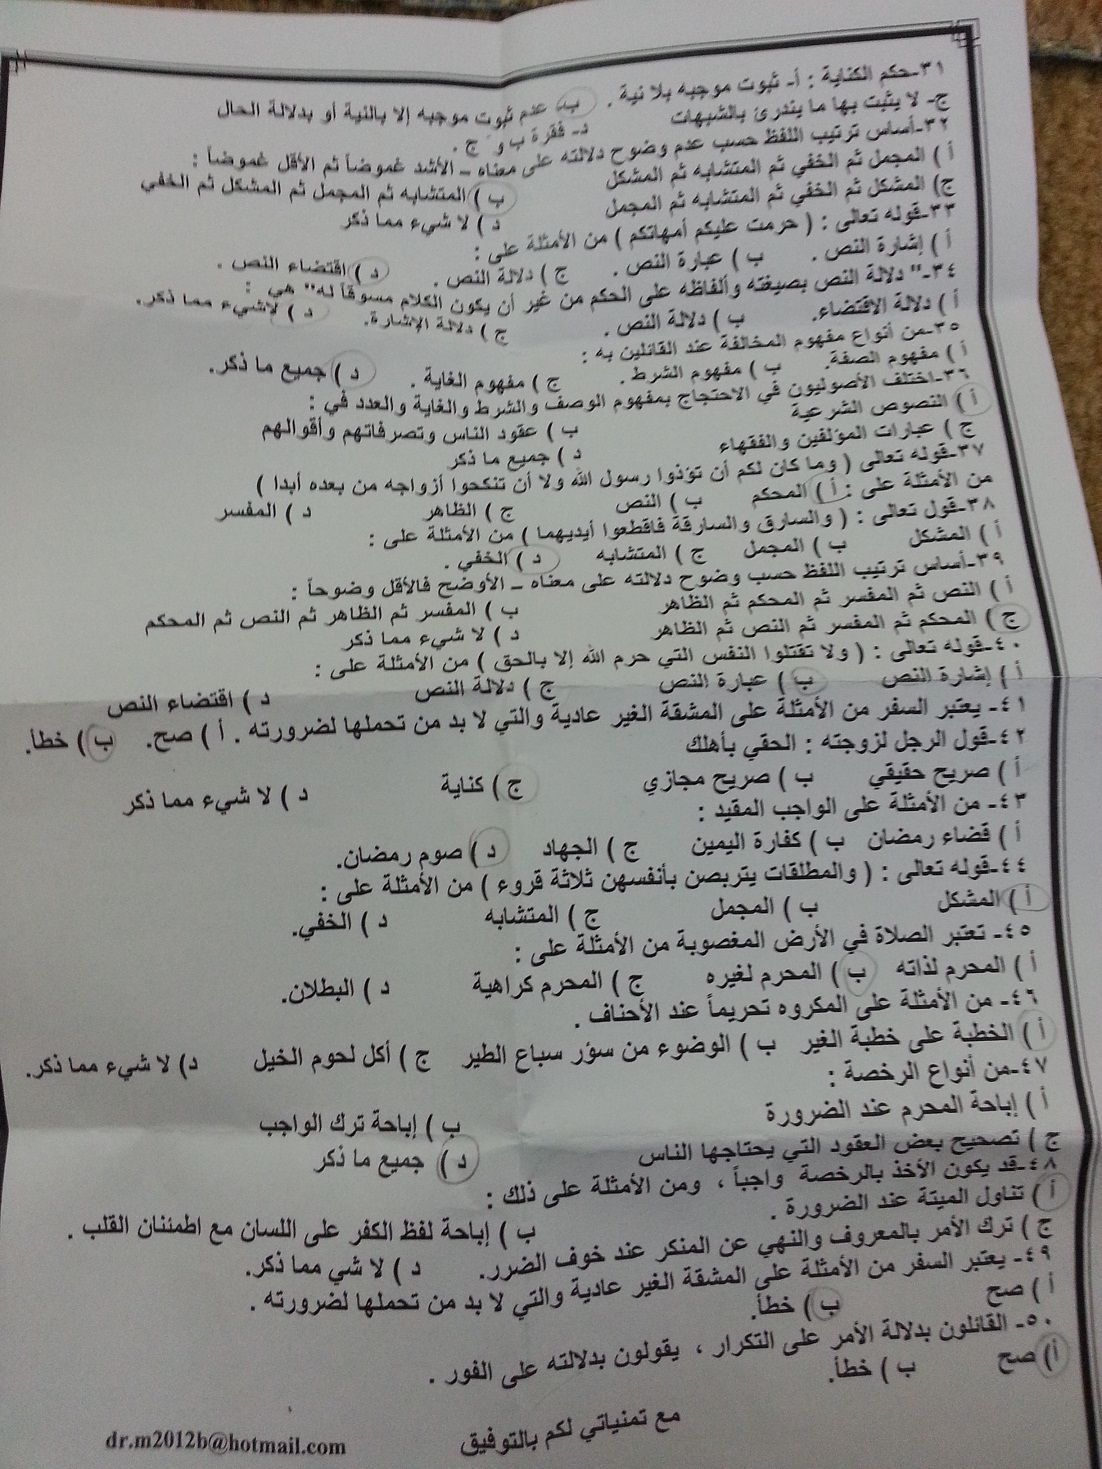 ٣١-حكم الكناية : أ- ثبوت موجبه بلا نية . ب- عدم ثبوت موجبه إلا بالنية أو بدلالة الحال
ج- لا يثبت بها ما يندرئ بالشبهات د- فقرة ب و ج .
٣٢-أساس ترتيب اللفظ حسب عدم وضوح دلالته على معناه – الأشد غموضاً ثم الأقل غموضاً :
أ ) المجمل ثم الخفي ثم المتشابه ثم المشكل ب ) المتشابه ثم المجمل ثم المشكل ثم الخفي
ج) المشكل ثم الخفي ثم المتشابه ثم المجمل د ) لا شيء مما ذكر
٣٣-قوله تعالى : ( حرمت عليكم أمهاتكم ) من الأمثلة على :
أ ) إشارة النص . ب ) عبارة النص . ج ) دلالة النص . د ) اقتضاء النص .
٣٤-" دلالة النص بصيغته وألفاظه على الحكم من غير أن يكون الكلام مسوقاً له" هي :
أ ) دلالة الاقتضاء. ب ) دلالة النص . ج ) دلالة الإشارة. د ) لاشيء مما ذكر.
٣٥-من أنواع مفهوم المخالفة عند القائلين به :
أ ) مفهوم الصفة. ب ) مفهوم الشرط . ج ) مفهوم الغاية . د ) جميع ما ذكر.
٣٦-اختلف الأصوليون في الاحتجاج بمفهوم الوصف والشرط والغاية والعدد في :
أ ) النصوص الشرعية ب ) عقود الناس وتصرفاتهم وأقوالهم
ج ) عبارات المؤلفين والفقهاء د ) جميع ما ذكر
٣٧-قوله تعالى ( وما كان لكم أن تؤذوا رسول الله ولا أن تنكحوا أزواجه من بعده أبدا )
من الأمثلة على : أ ) المحكم ب ) النص ج ) الظاهر د ) المفسر
٣٨-قول تعالى : ( والسارق والسارقة فاقطعوا أيديهما ) من الأمثلة على :
أ ) المشكل ب ) المجمل ج ) المتشابه د ) الخفي .
٣٩-أساس ترتيب اللفظ حسب وضوح دلالته على معناه – الأوضح فالأقل وضوحاً :
أ ) النص ثم المفسر ثم المحكم ثم الظاهر ب ) المفسر ثم الظاهر ثم النص ثم المحكم
ج ) المحكم ثم المفسر ثم النص ثم الظاهر د ) لا شيء مما ذكر
٤٠-قوله تعالى : ( ولا تقتلوا النفس التي حرم الله إلا بالحق ) من الأمثلة على :
أ ) إشارة النص ب ) عبارة النص ج ) دلالة النص د ) اقتضاء النص
٤١- يعتبر السفر من الأمثلة على المشقة الغير عادية والتي لا بد من تحملها لضرورته . أ ) صح. ب ) خطأ.
٤٢-قول الرجل لزوجته : الحقي بأهلك
أ ) صريح حقيقي ب ) صريح مجازي ج ) كناية د ) لا شيء مما ذكر
٤٣- من الأمثلة على الواجب المقيد :
أ ) قضاء رمضان ب ) كفارة اليمين ج ) الجهاد د ) صوم رمضان.
٤٤-قوله تعالى : ( والمطلقات يتربصن بأنفسهن ثلاثة قروء ) من الأمثلة على :
أ ) المشكل ب ) المجمل ج ) المتشابه د ) الخفي.
٤٥- تعتبر الصلاة في الأرض المغصوبة من الأمثلة على :
أ ) المحرم لذاته ب ) المحرم لغيره ج ) المحرم كراهية د ) البطلان.
٤٦- من الأمثلة على المكروه تحريماً عند الأحناف .
أ ) الخطبة على خطبة الغير ب ) الوضوء من سؤر سباع الطير ج ) أكل لحوم الخيل د) لا شيء مما ذكر.
٤٧-من أنواع الرخصة :
أ ) إباحة المحرم عند الضرورة ب ) إباحة ترك الواجب
ج ) تصحيح بعض العقود التي يحتاجها الناس د ) جميع ما ذكر
٤٨-قد يكون الأخذ بالرخصة واجباً ، ومن الأمثلة على ذلك :
أ ) تناول الميتة عند الضرورة . ب ) إباحة لفظ الكفر على اللسان مع اطمئنان القلب .
ج ) ترك الأمر بالمعروف والنهي عن المنكر عند خوف الضرر. د ) لا شي مما ذكر.
٤٩- يعتبر السفر من الأمثلة على المشقة الغير عادية والتي لا بد من تحملها لضرورته .
أ ) صح ب ) خطأ.
٥٠- القائلون بدلالة الأمر على التكرار ، يقولون بدلالته على الفور .
أ) صح ب ) خطأ.
مع تمنياتي لكم بالتوفيق
dr.m2012b@hotmail.com